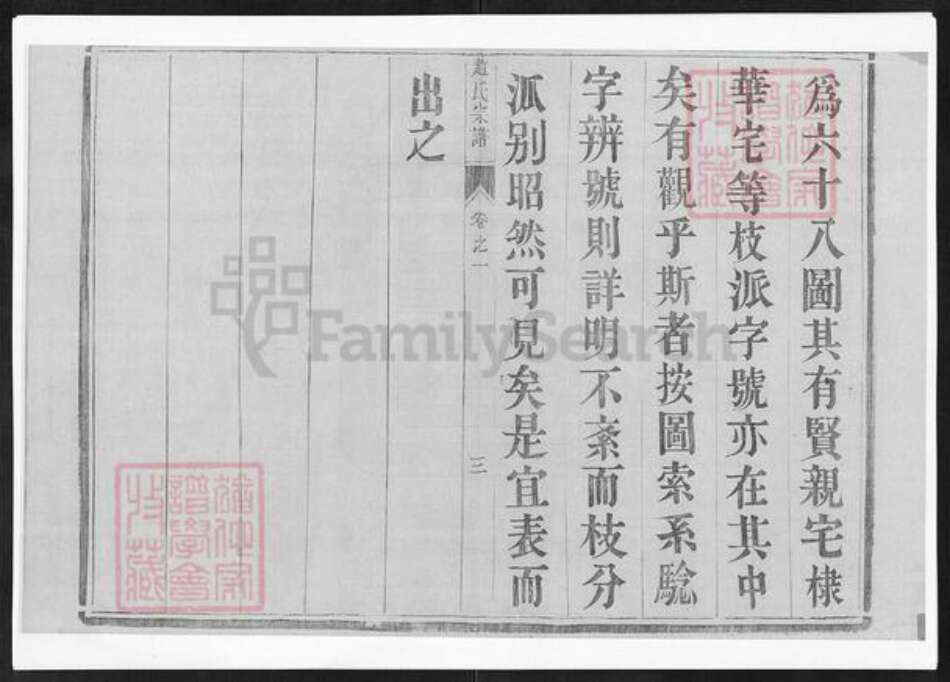 爲六十八圖其有賢親宅棣
華宅等枝派字號亦在其中
矣有觀乎斯者按圖索系騐
字辨號則詳明不紊而枝分
派别昭然可見矣是宜表而
出之
趙氏宗譜
卷之一
三
FamilySearch